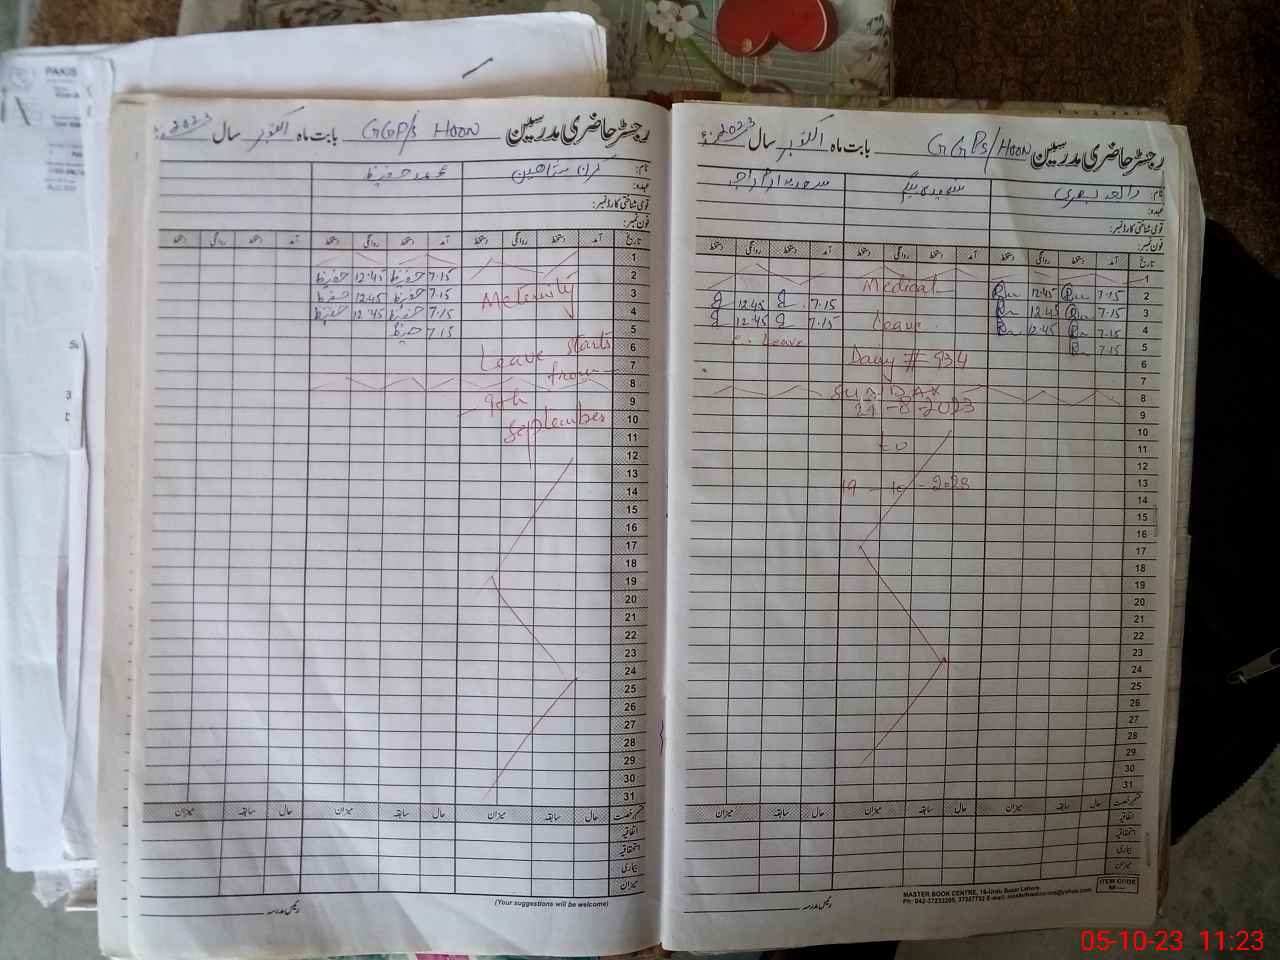 PAKIS
رجسٹر حاضری مدرسین GGPS/HOON بابت ماہ اکتوبر سال 2023ء
نام: رائعہ بصری
عہدہ:
قومی شناختی کارڈ نمبر:
فون نمبر:
تاریخ آمد دستخط روانگی دستخط آمد دستخط روانگی دستخط آمد دستخط روانگی دستخط
1
2 7.15 12.45 Medical
3 7.15 12.45 7.15 12.45
4 7.15 12.45 Leave 7.15 12.45
5 7.15 Leave
6 Dairy # 934
7
8 SUNDAY
9 29-8-2023
10
11 to
12
13 19-10-2023
14
15
16
17
18
19
20
21
22
23
24
25
26
27
28
29
30
31
قسم رخصت حال سابقہ میزان حال سابقہ میزان حال سابقہ میزان
اتفاقیہ
استحقاقیہ
بیماری
میزان
رئیس مدرسہ
MASTER BOOK CENTRE, 16-Urdu Bazar Lahore.
ITEM CODE
رجسٹر حاضری مدرسین GGP/s HOON بابت ماہ اکتوبر سال 2023ء
نام: کرن شاھین محمد حفیظ
عہدہ:
قومی شناختی کارڈ نمبر:
فون نمبر:
تاریخ آمد دستخط روانگی دستخط آمد دستخط روانگی دستخط آمد دستخط روانگی دستخط
1
2 7.15 حفیظ 12.45 حفیظ
3 Meternity 7.15 حفیظ 12.45 حفیظ
4 7.15 حفیظ 12.45 حفیظ
5 7.15 حفیظ
6 Leave starts
7 from
8
9 9th
10 September
11
12
13
14
15
16
17
18
19
20
21
22
23
24
25
26
27
28
29
30
31
قسم رخصت حال سابقہ میزان حال سابقہ میزان حال سابقہ میزان
اتفاقیہ
استحقاقیہ
بیماری
میزان
(Your suggestions will be welcome)
رئیس مدرسہ
05-10-23 11:23